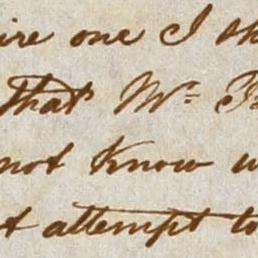 one I
that Mr
not know
attempt to